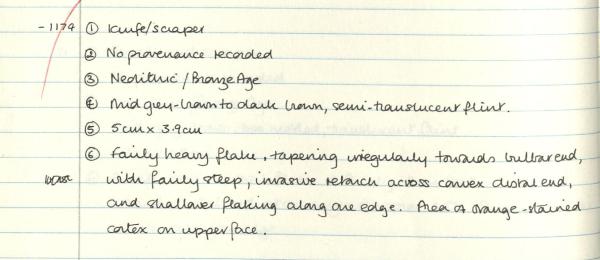 -1179 ① Knife/scraper
② No provenance recorded
③ Neolithic/Bronze Age
④ Mid grey-brown to dark brown, semi-translucent flint.
⑤ 5cm x 3.9cm
⑥ Fairly heavy flake, tapering irregularly towards bulbar end,
with fairly steep, invasive retouch across convex distal end,
and shallower flaking along one edge. Area of orange-stained
cortex on upper face.